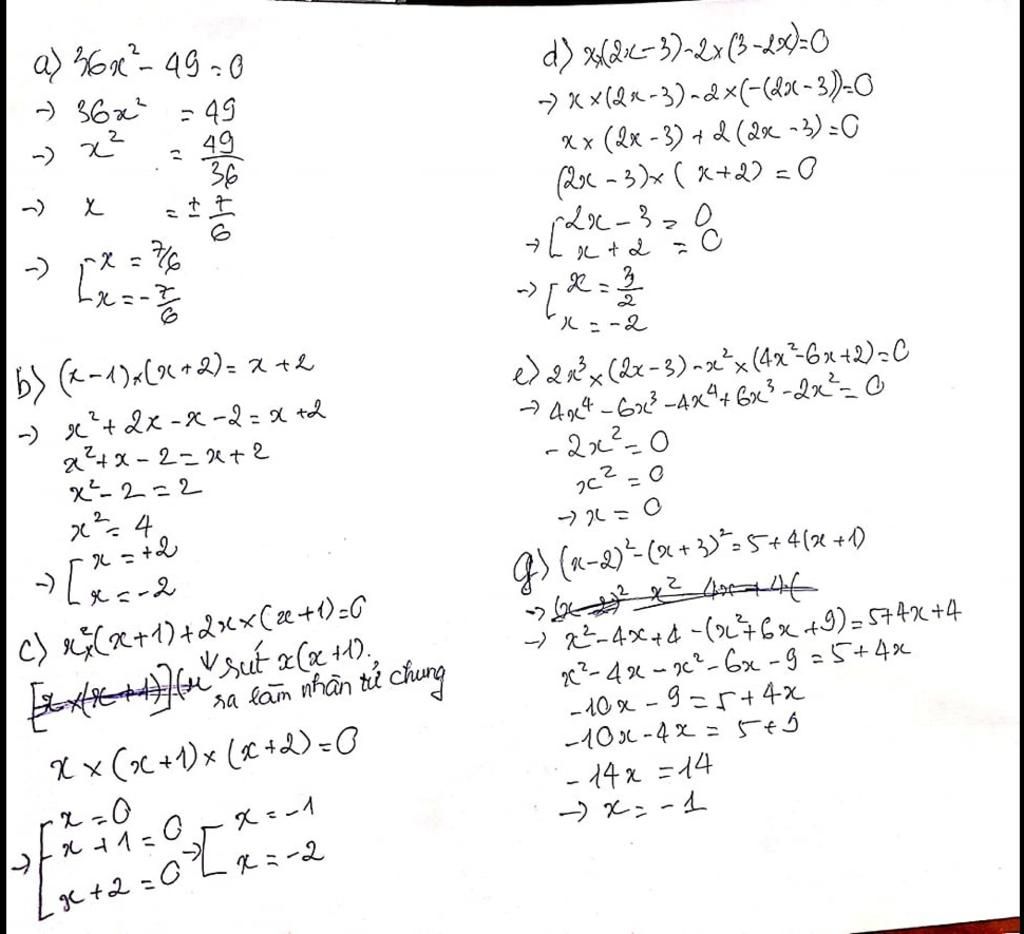 a) 36x² - 49 = 0
→ 36x² = 49
→ x² = 49/36
→ x = ± 7/6
→ [ x = 7/6
x = - 7/6
b) (x-1)×(x+2) = x+2
→ x² + 2x - x - 2 = x + 2
x² + x - 2 = x + 2
x² - 2 = 2
x² = 4
→ [ x = +2
x = -2
c) x²×(x+1) + 2x×(x+1) = 0
↓ sút x(x+1).
ra làm nhân tử chung
x × (x+1) × (x+2) = 0
→ [ x = 0
x + 1 = 0 → [ x = -1
x + 2 = 0 x = -2
d) x×(2x-3) - 2×(3-2x) = 0
→ x×(2x-3) - 2×(-(2x-3)) = 0
x×(2x-3) + 2(2x-3) = 0
(2x-3)×(x+2) = 0
→ [ 2x - 3 = 0
x + 2 = 0
→ [ x = 3/2
x = -2
e) 2x³×(2x-3) - x²×(4x²-6x+2) = 0
→ 4x⁴ - 6x³ - 4x⁴ + 6x³ - 2x² = 0
- 2x² = 0
x² = 0
→ x = 0
g) (x-2)² - (x+3)² = 5 + 4(x+1)
→ x² - 4x + 4 - (x² + 6x + 9) = 5 + 4x + 4
x² - 4x - x² - 6x - 9 = 5 + 4x
-10x - 9 = 5 + 4x
-10x - 4x = 5 + 9
-14x = 14
→ x = -1